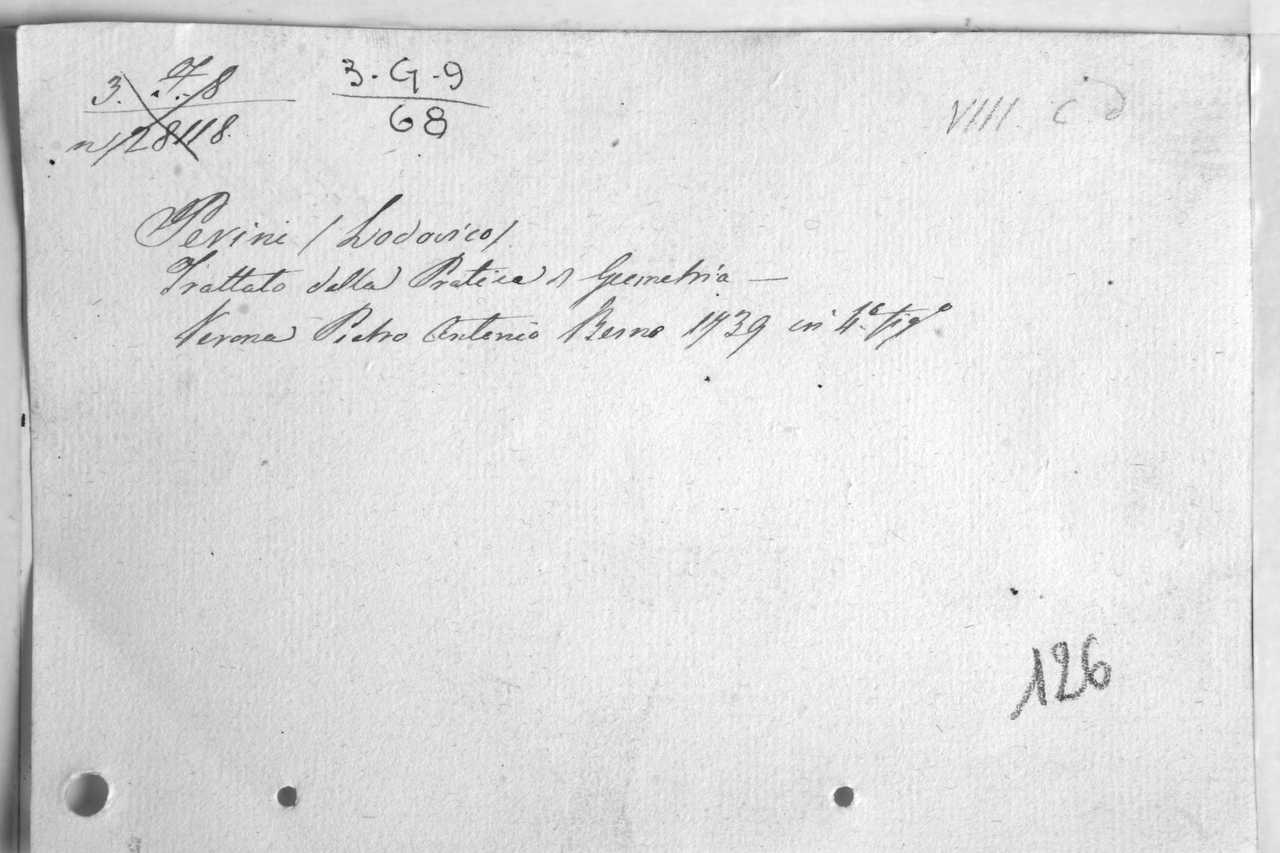 3. F. 8
n/28118.
3 - G - 9
68
VIII C. d
Perini / Lodovico /
Trattato della Pratica di Geometria —
Verona Pietro Antonio Berno 1739 in 4.° fig.°
126